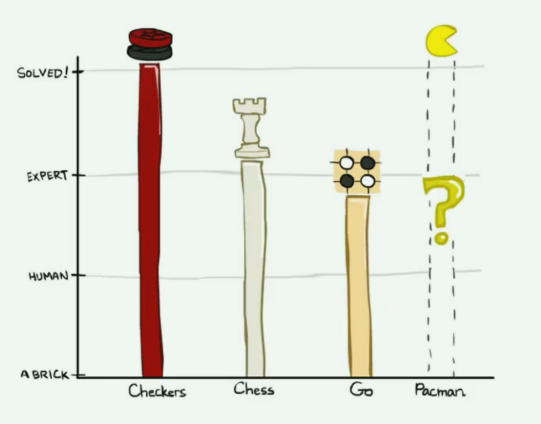 SOLVED!
EXPERT
HUMAN
A BRICK
Checkers Chess Go Pacman
?